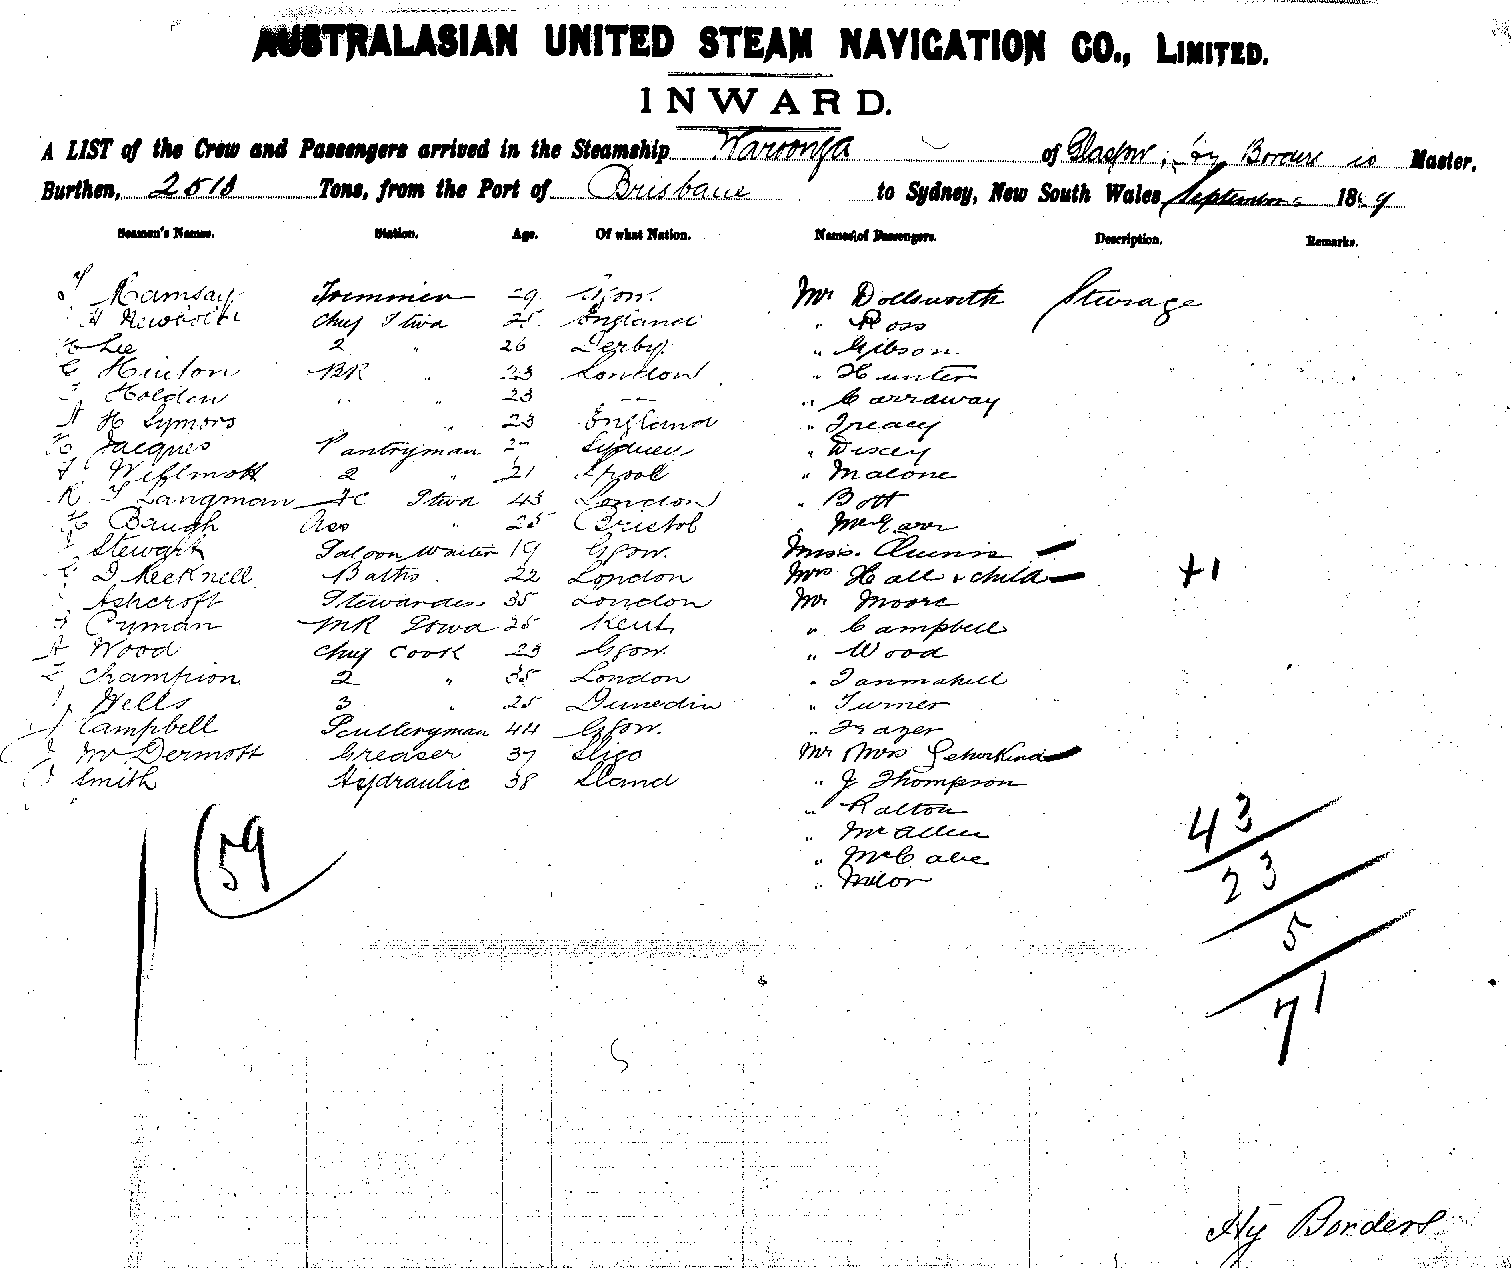 AUSTRALASIAN UNITED STEAM NAVIGATION CO., LIMITED.
INWARD.
A LIST of the Crew and Passengers arrived in the Steamship Waroonga of Glasgow, Hy Borders is Master,
Burthen, 2513 Tons, from the Port of Brisbane to Sydney, New South Wales September 1889
Seamen's Names. Station. Age. Of what Nation. Names of Passengers. Description. Remarks.
Ramsay Trimmer 29 Ggow. Mr Dollsworth Steerage
H Newbolt Chief Stwd 25 England " Ross
H Lee 2 " 26 Derby " Gibson
G Hinton BR " 23 London " Hunter
Holden " " 23 " Carraway
A H Symors " 23 England " Treacy
H Jacques Pantryman Sydney
Willmott 2 " 21 Lpool " Malone
R T Langman FC Stwd 43 London " Bott
H Baugh Ass " 25 Bristol
Stewart Saloon Waiter 19 Ggow. Miss
G D Recknell Baths 22 London Mrs Hall & child +1
Ashcroft Stewardess 35 London Mr Moore
Pyman MR Stwd 25 Kent " Campbell
A Wood Chief Cook 23 Ggow. " Wood
Champion 2 " 35 London " Tannahill
J Wells 3 " 25 Dunedin " Turner
J Campbell Sculleryman 44 Ggow. " Frazer
J McDermott Greaser 37 Sligo Mr Mrs
Smith Hydraulic 38 " J Thompson
" Ralton
" McAllen
" McCabe
"
59
43
23
5
71
Hy Borders